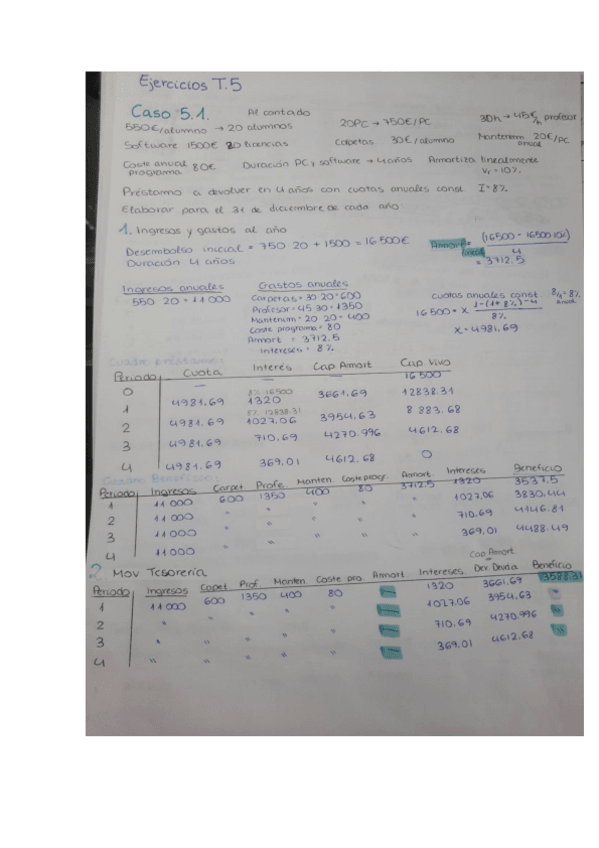 Ejercicios T.5
Caso 5.1. Al contado
550€/alumno → 20 alumnos 20PC → 750€/PC 30h → 45€/h profesor
Software 1500€ 20 licencias Carpetas 30€/alumno Mantenim 20€/PC anual
Coste anual programa 80€ Duración PC y software → 4 años Amortiza linealmente Vr = 10%
Préstamo a devolver en 4 años con cuotas anuales const. I = 8%
Elaborar para el 31 de diciembre de cada año
1. Ingresos y gastos al año
Desembolso inicial = 750·20 + 1500 = 16500€
Duración 4 años
Amort lineal = (16500 - 16500·10%) / 4 = 3712.5
Ingresos anuales
550·20 = 11000
Gastos anuales
Carpetas = 30·20 = 600
Profesor = 45·30 = 1350
Mantenim = 20·20 = 400
Coste programa = 80
Amort = 3712.5
Intereses = 8%
cuotas anuales const. = 8%
anual
16500 = x 1-(1+8%)^-4 / 8%
x = 4981.69
Cuadro préstamo:
Periodo Cuota Interés Cap. Amort Cap. Vivo
0 — — — 16500
8%·16500
1 4981.69 1320 3661.69 12838.31
8%·12838.31
2 4981.69 1027.06 3954.63 8883.68
3 4981.69 710.69 4270.996 4612.68
4 4981.69 369.01 4612.68 0
Cuadro Beneficio:
Periodo Ingresos Carpet Profe. Manten. Coste progr. Amort. Intereses Beneficio
1 11000 600 1350 400 80 3712.5 1320 3537.5
2 11000 " " " " " 1027.06 3830.44
3 11000 " " " " " 710.69 4146.81
4 11000 " " " " " 369.01 4488.49
2. Mov Tesorería
Cap. Amort
Periodo Ingresos Carpet Prof. Manten. Coste pro. Amort Intereses Dev. Deuda Beneficio
1 11000 600 1350 400 80 — 1320 3661.69 3588.31
2 " " " " " — 1027.06 3954.63 "
3 " " " " " — 710.69 4270.996 "
4 " " " " " — 369.01 4612.68